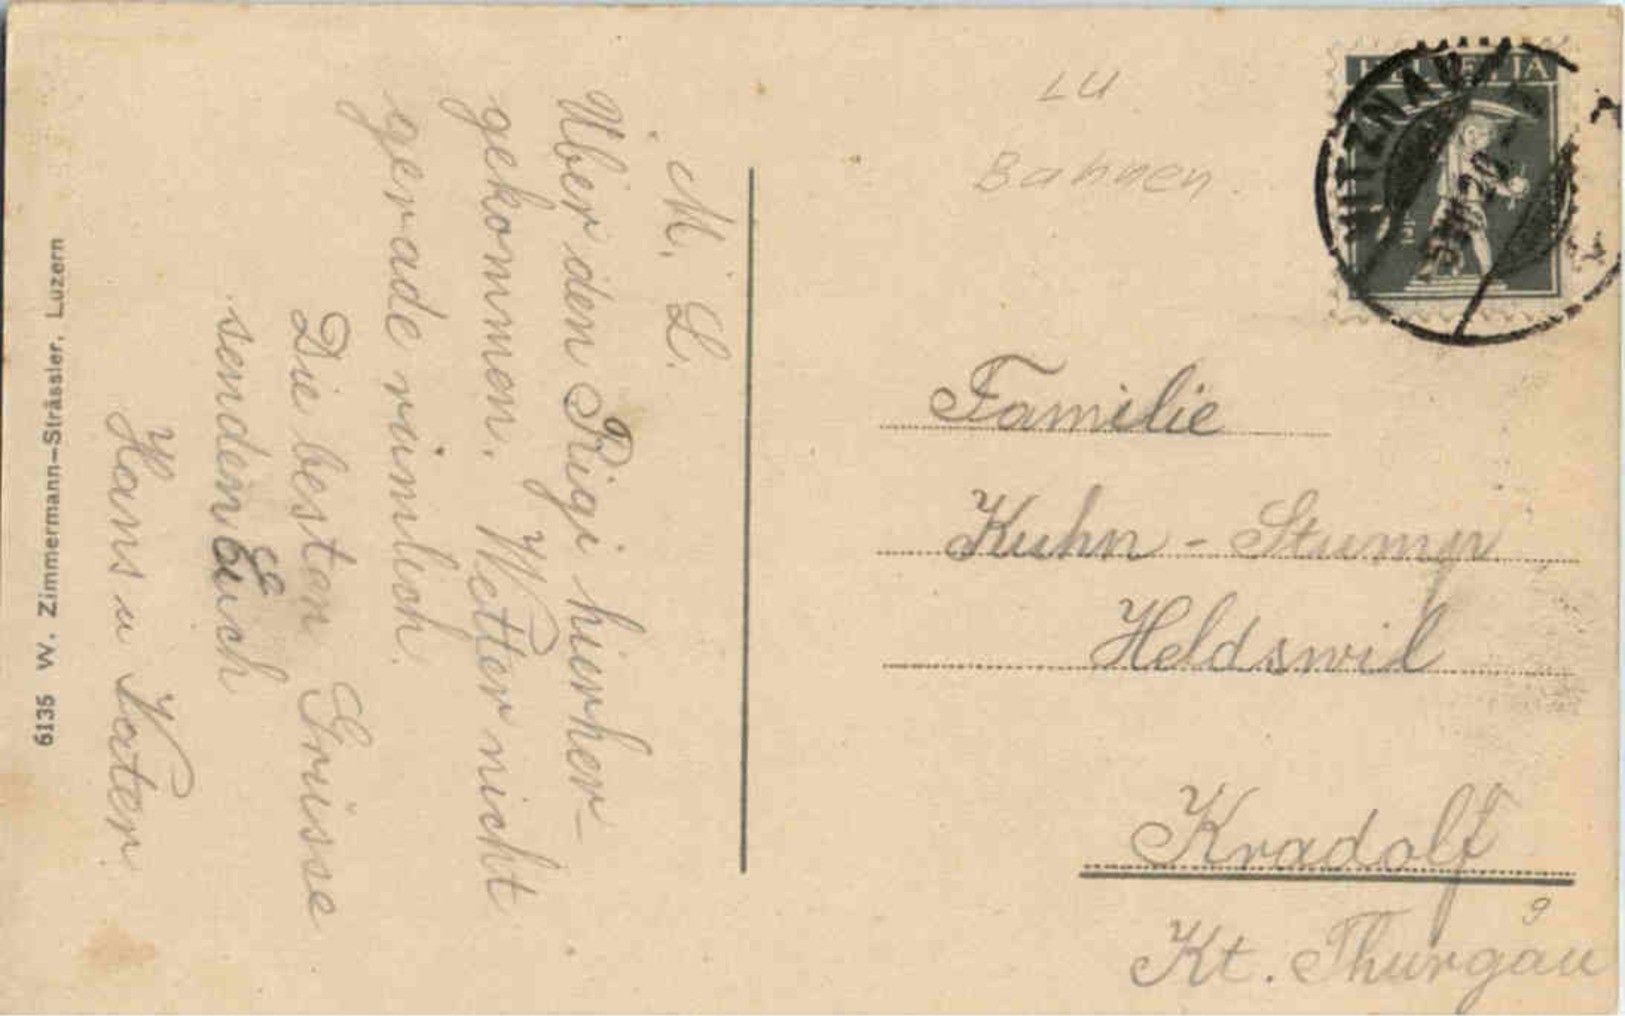 M. L.
Über den Rigi hierher-
gekommen. Wetter nicht
gerade reinlich.
Die besten Grüsse
senden Euch
Hans u Vater.
6135 W. Zimmermann-Strässler, Luzern
LU
Bahnen
HELVETIA
VITZNAU
Familie
Kuhn - Stump
Heldswil
Kradolf
9
Kt. Thurgau